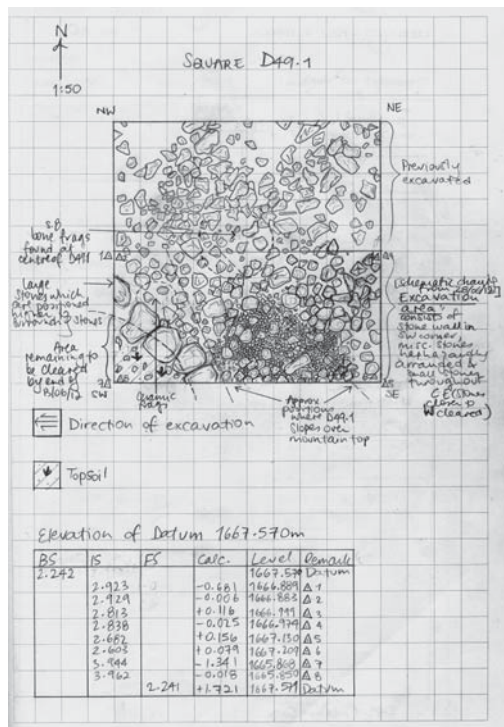 N
1:50
SQUARE D49.1
NW
NE
Previously
excavated
S.B
bone frags
found at
centre of D49.1
Large
stones which
are positioned
higher to
surrounding stones
Area
remaining to
be cleared
by end of
SW
Ceramic
frags
Approx
positions
where D49.1
slopes over
mountain top
SE
Excavation
area
consists of
stone wall in
SW corner,
misc. stones
haphazardly
arranged &
small stones
throughout
(E (stones
closer to
W cleared)
Direction of excavation
Topsoil
Elevation of Datum 1667.570m
BS IS FS Calc. Level Remark
2.242 1667.570 Datum
2.923 -0.681 1666.889 Δ 1
2.929 -0.006 1666.883 Δ 2
2.813 +0.116 1666.999 Δ 3
2.838 -0.025 1666.974 Δ 4
2.682 +0.156 1667.130 Δ 5
2.603 +0.079 1667.209 Δ 6
3.944 -1.341 1665.868 Δ 7
3.962 -0.018 1665.850 Δ 8
2.241 +1.721 1667.571 Datum